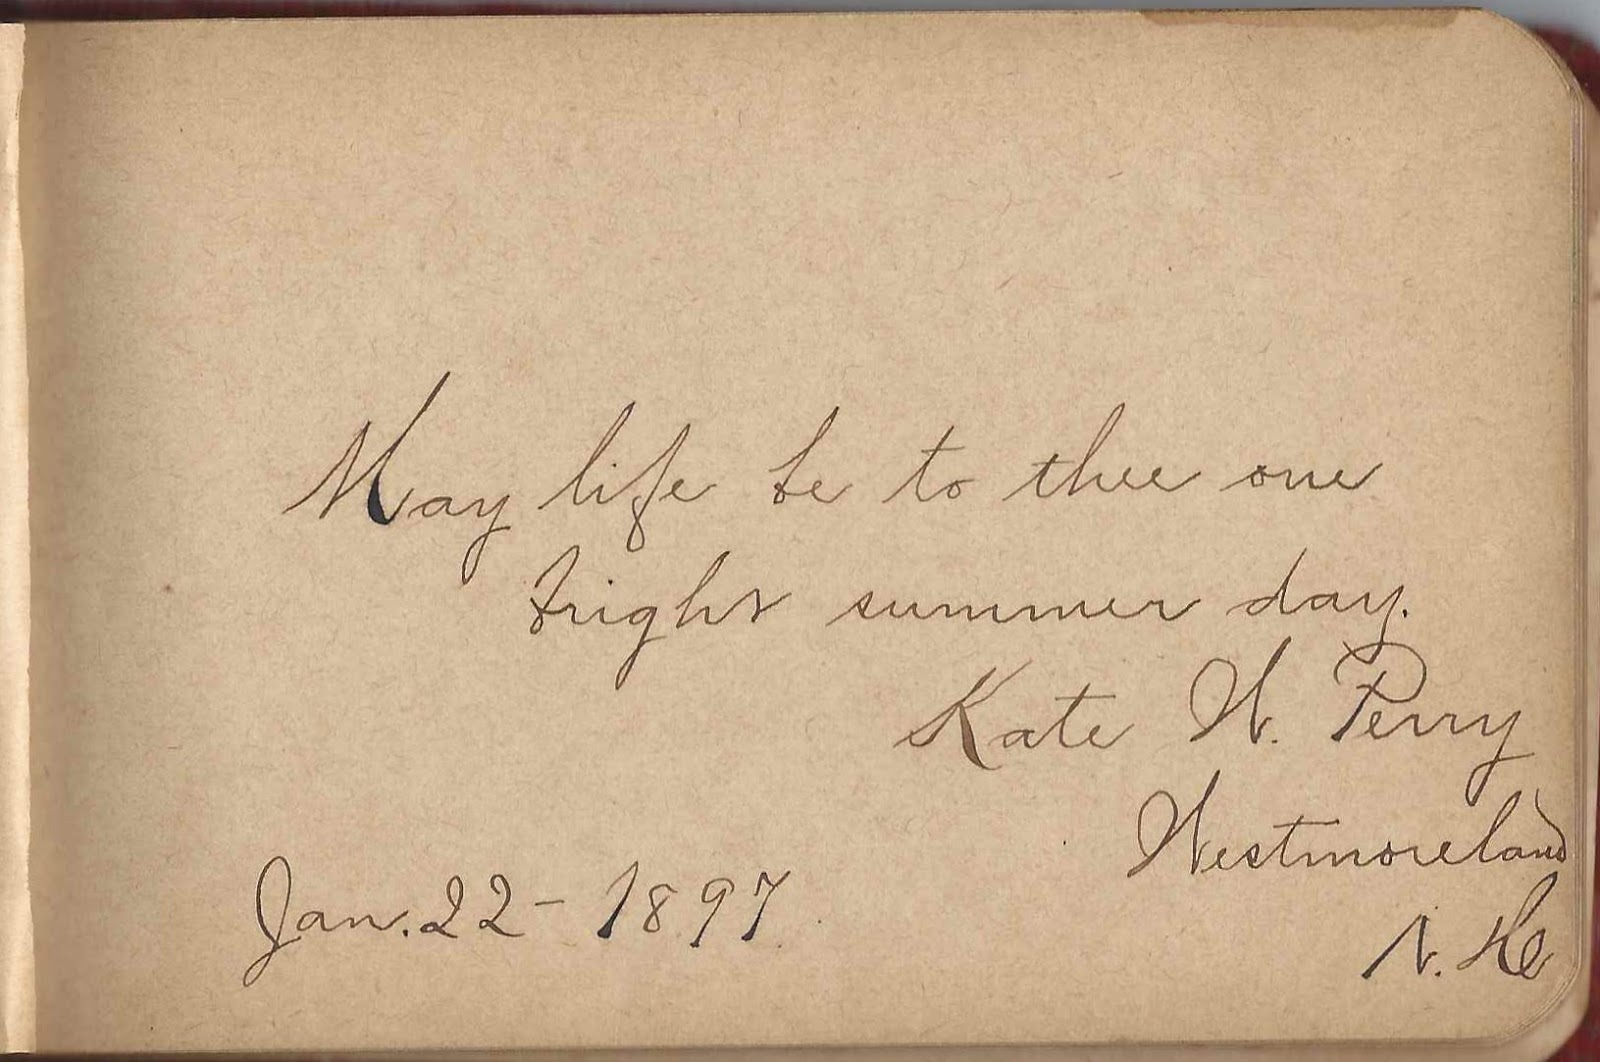 May life be to thee one
bright summer day.
Kate W. Perry
Westmoreland
N. H.
Jan. 22 - 1897